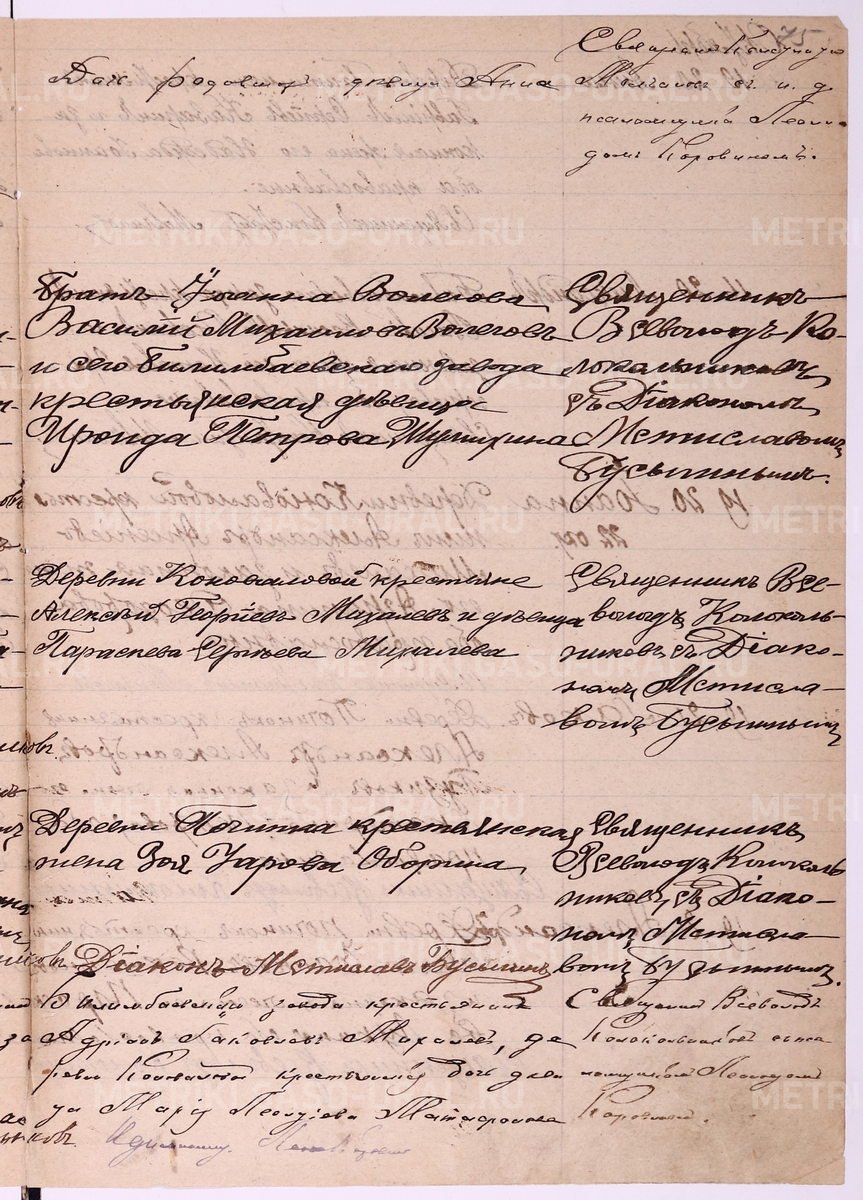 75
Дочь родителей девица Анна
Священник Конст
Молчанов с и. д.
псаломщика Леони-
дом Коровиномъ.
Братъ Іоанна Волегова
Василий Михаиловъ Волеговъ
и сего Билимбаевскаго завода
крестьянская девица
Ироида Петрова Шулихина
Священникъ
Всеволодъ Ко-
локольниковъ
съ Діакономъ
Мстиславомъ
Бусыгинымъ.
Деревни Коноваловой крестьяне
Алексѣй Георгіевъ Михалевъ и дѣвица
Параскева Сергѣева Михалева
Священникъ Все-
володъ Колоколь-
никовъ съ Діако-
номъ Мстисла-
вомъ Бусыгинымъ
Деревни Починка крестьянская
жена Зоя Уарова Оборина
Священникъ
Всеволодъ Колоколь
никовъ съ Діако-
номъ Мстисла-
вомъ Бусыгинымъ.
Діаконъ Мстиславъ Бусыгинъ
Билимбаевскаго завода крестьянинъ
Адріанъ Яковлевъ Михалевъ, де
ревни Коноваловой крестьянина дочь деви
ца Марія
Священникъ Всеволодъ
Колокольниковъ съ пса
ломщикомъ Леонидомъ
Коровинымъ.
METRIKI.GASO-URAL.RU